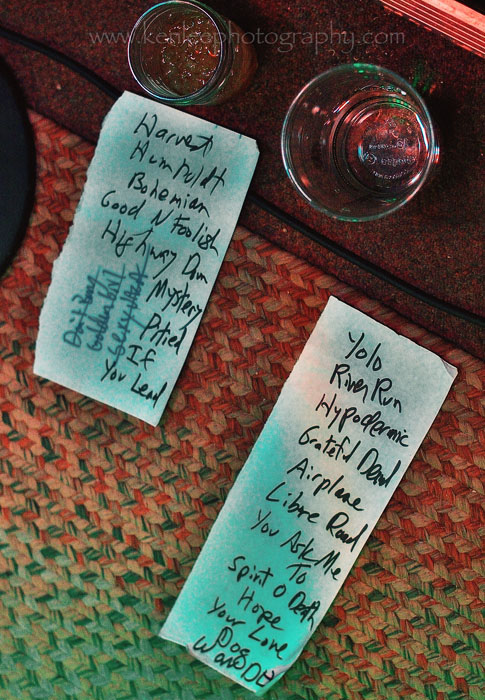 www.kenleephotography.com
Harvest
Humboldt
Bohemian
Good N Foolish
Highway Dm
Mystery
Pitied
If
You Lead
Yolo
River Run
Hypodermic
Grateful Dead
Airplane
Libre Road
You Ask Me
To
Spirit O Death
Hope
Your Love
Dog